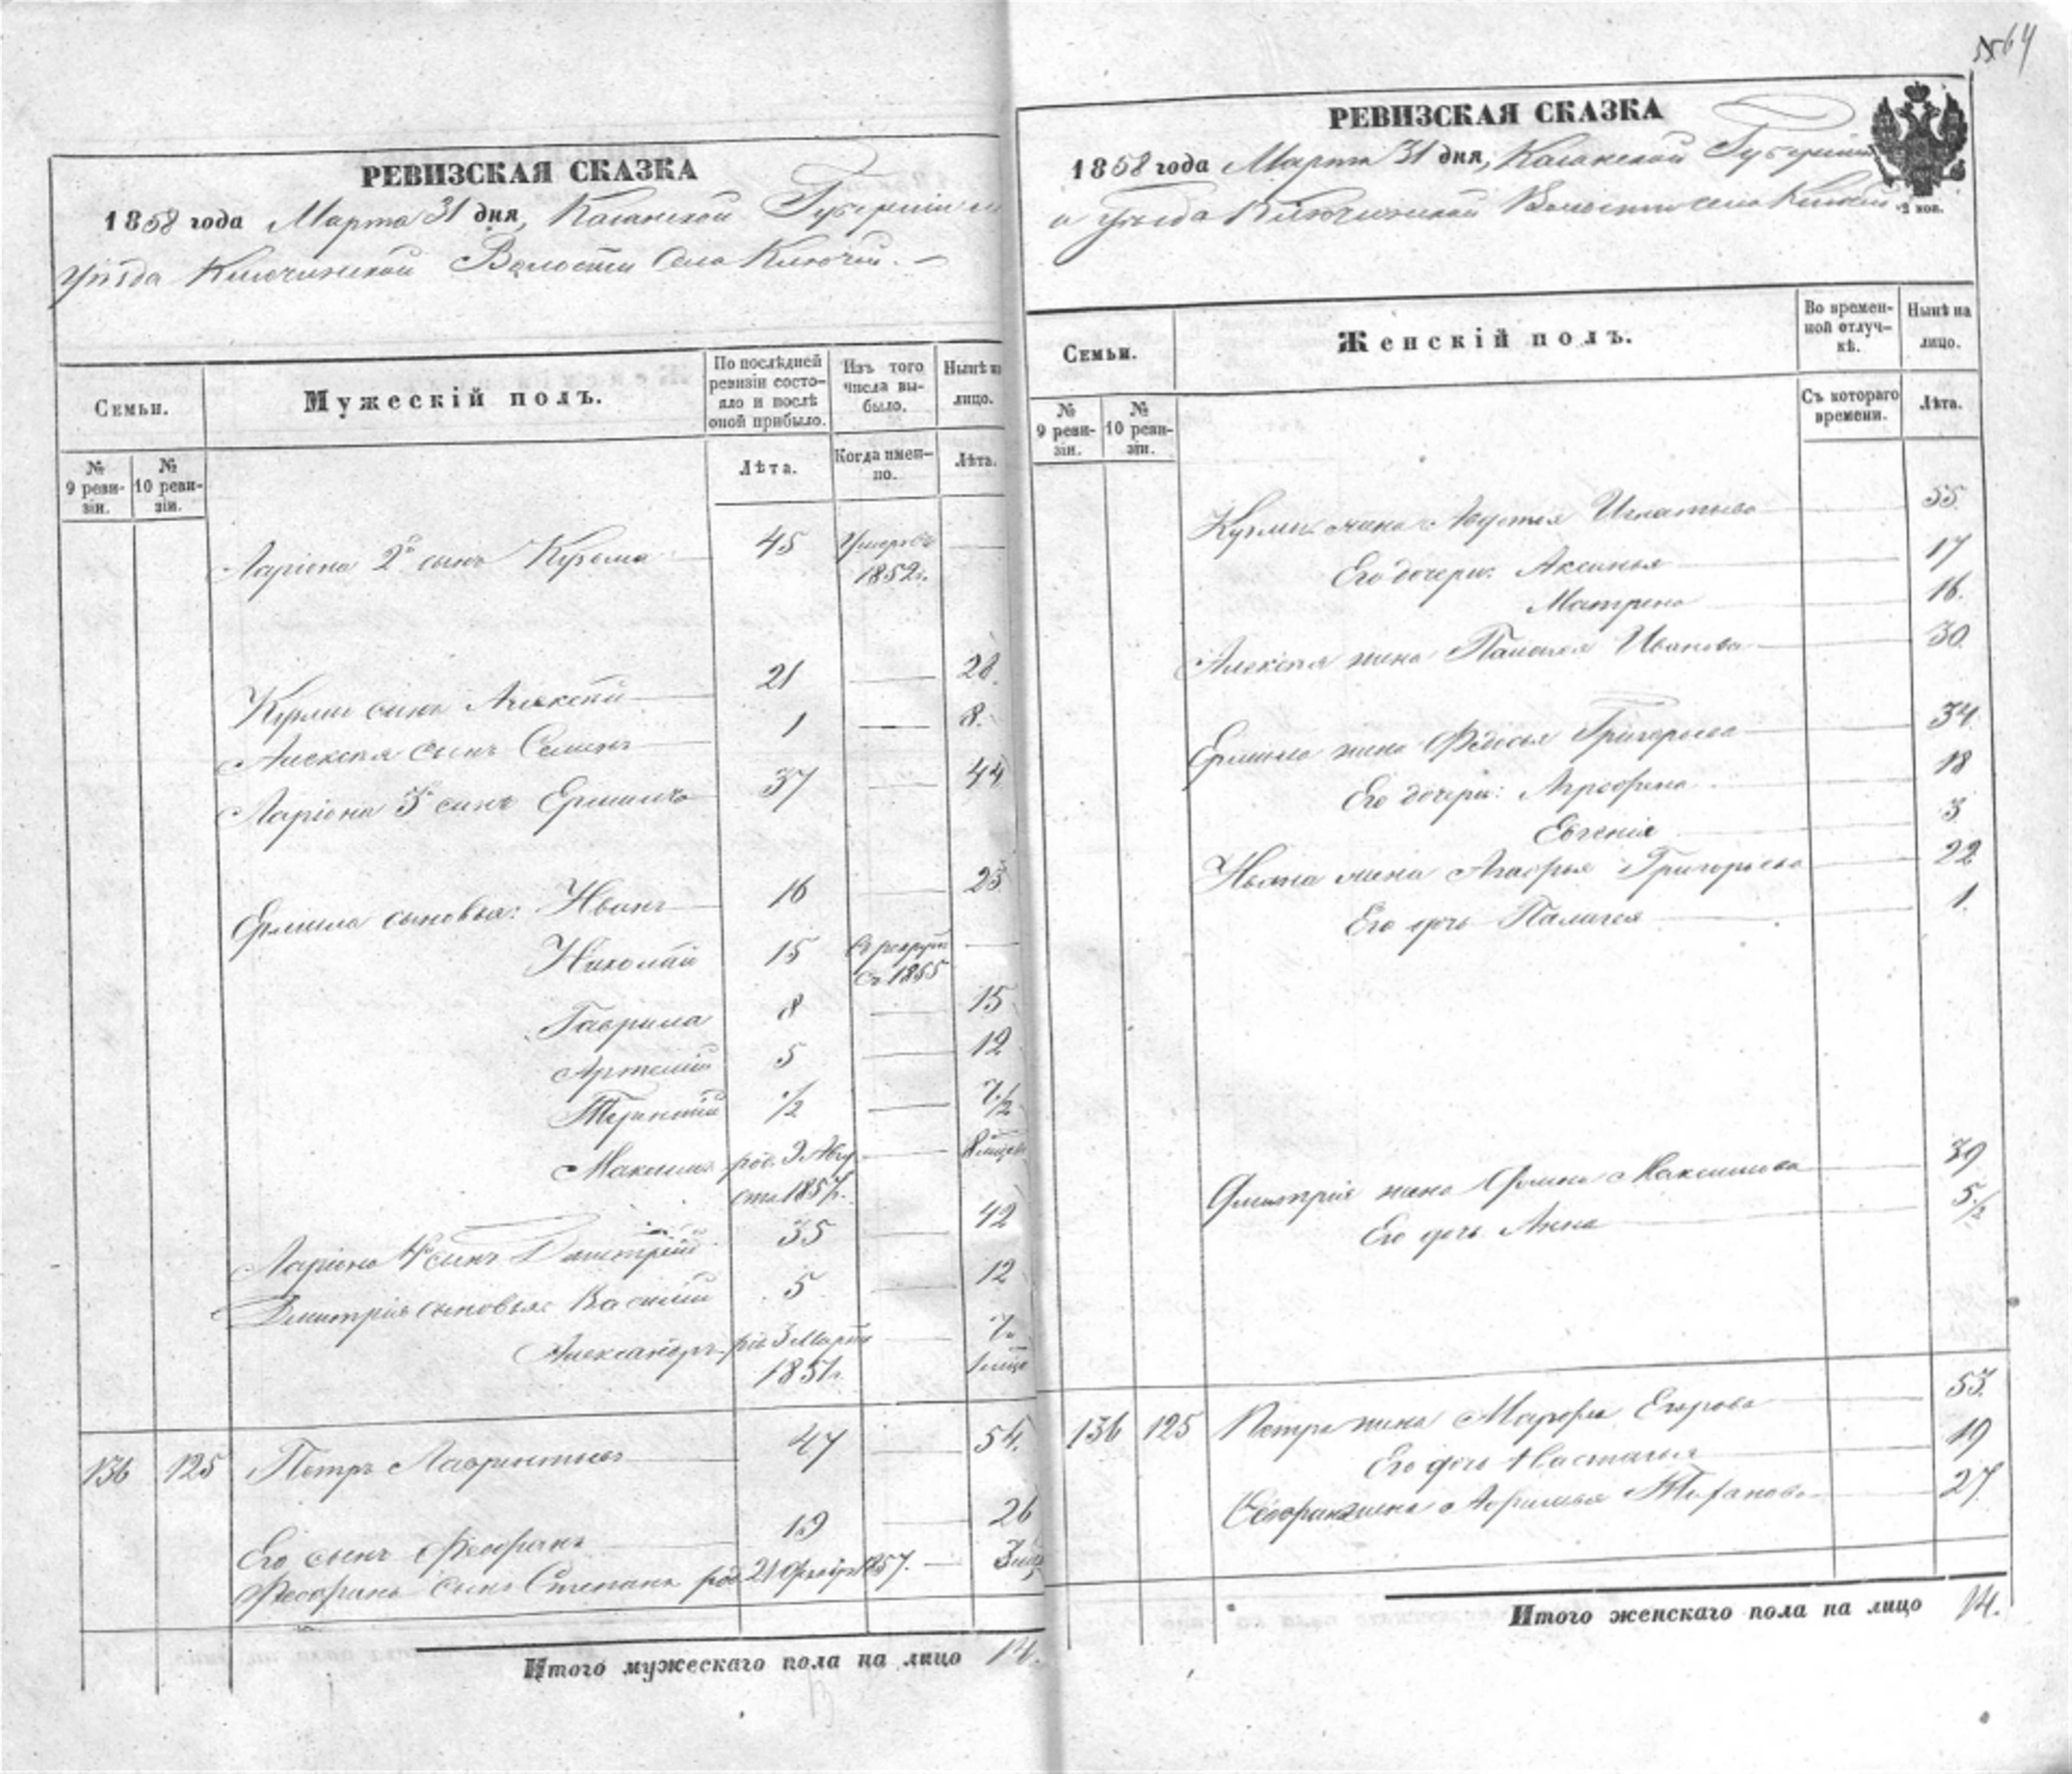 № 64
РЕВИЗСКАЯ СКАЗКА
1858 года Марта 31 дня, Казанской Губерніи
Уѣзда Ключинской Волости Села Ключи.
Семьи.
Мужескій полъ.
По послѣдней ревизіи состояло и послѣ оной прибыло.
Изъ того числа выбыло.
Нынѣ на лицо.
№ 9 ревизіи.
№ 10 ревизіи.
Лѣта.
Когда именно.
Лѣта.
Ларіона 2й сынъ Кузьма 45 Умеръ въ 1852г.
Кузмы сынъ Алексѣй 21 28.
Алексѣя сынъ Семенъ 1 8.
Ларіона 3й сынъ Ермилъ 37 44
Ермила сыновья: Иванъ 16 23
Николай 15 въ рекруты съ 1855
Гаврила 8 15
Артемій 5 12
Терентій 1/2 7 1/2
Максимъ род. 9 Августа 1857г. 8 мѣсяц
Ларіона 4й сынъ Дмитрій 35 42
Дмитрія сыновья: Василій 5 12
Александръ род 3 Марта 1851г. 7. 1 мѣся
136 125 Петръ Лаврентьевъ 47 54.
Его сынъ Феофанъ 19 26
Феофана сынъ Степанъ род 21 1857г. 3 мѣс
Итого мужескаго пола на лицо 14.
РЕВИЗСКАЯ СКАЗКА
1858 года Марта 31 дня, Казанской Губерніи
и Уѣзда Ключинской Волости села Ключи
2 коп.
Семьи.
Женскій полъ.
Во временной отлучкѣ.
Нынѣ на лицо.
№ 9 ревизіи.
№ 10 ревизіи.
Съ котораго времени.
Лѣта.
Кузмы жена Авдотья Игнатьева 55.
Его дочери: Аксинья 17
Матрена 16.
Алексѣя жена Палагея Иванова 30.
Ермила жена Федосья Григорьева 34.
Его дочери: Агрофена 18
Евгенія 3
Ивана жена Агафья Григорьева 22
Его дочь Палагея 1.
Дмитрія жена Фекла Максимова 39
Его дочь Анна 5 1/2
136 125 Петра жена Марфа Егорова 53.
Его дочь Настасья 19
Феофана жена 27.
Итого женскаго пола на лицо 14.